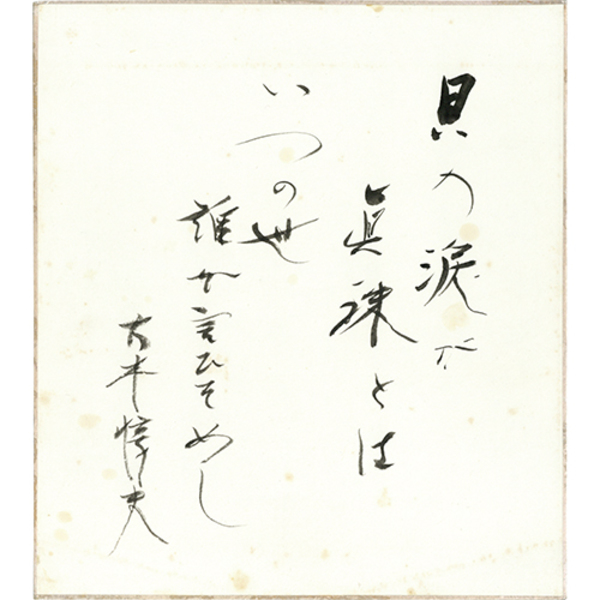 貝の涙が
真珠とは
いつの世
誰か言ひそめし
大木惇夫